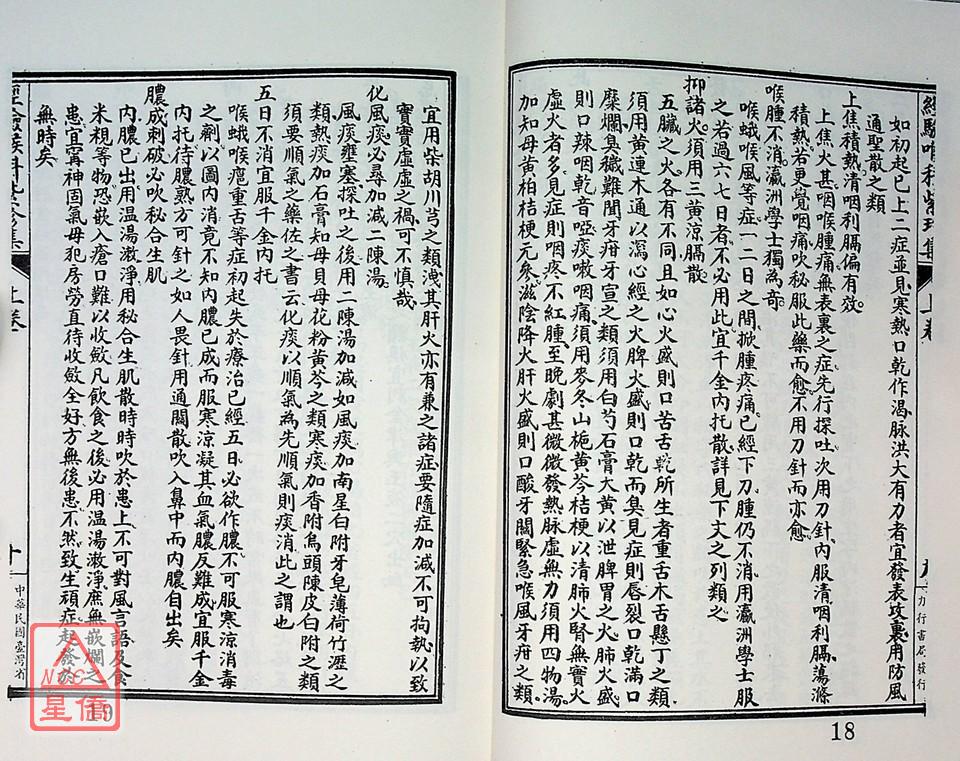 經驗喉科紫珍集 上卷
力行書局發行
如初起已上二症並見寒熱口乾作渴脉洪大有力者宜發表攻裏用防風
通聖散之類
上焦積熱清咽利膈偏有效
上焦火甚咽喉腫痛無表裏之症先行探吐次用刀針內服清咽利膈蕩滌
積熱若更覺咽痛吹秘服此藥而愈不用刀針而亦愈
喉腫不消瀛洲學士獨為奇
喉蛾喉風等症一二日之間掀腫疼痛已經下刀腫仍不消用瀛洲學士服
之若過六七日者不必用此宜千金內托散詳見下文之列類之
抑諸火須用三黃涼膈散
五臟之火各有不同且如心火盛則口苦舌乾所生者重舌木舌懸丁之類
須用黃連木通以瀉心經之火脾火盛則口乾而臭見症則唇裂口乾滿口
糜爛臭穢難聞牙疳牙宣之類須用白芍石膏大黃以泄脾胃之火肺火盛
則口辣咽乾音啞痰嗽咽痛須用麥冬山梔黃芩桔梗以清肺火腎無實火
虛火者多見症則咽疼不紅腫至晚劇甚微微發熱脉虛無力須用四物湯
加知母黃柏桔梗元參滋陰降火肝火盛則口酸牙關緊急喉風牙疳之類
18
宜用柴胡川芎之類洩其肝火亦有兼之諸症要隨症加減不可拘執以致
實實虛虛之禍可不慎哉
化風痰必尋加減二陳湯
風痰壅塞探吐之後用二陳湯加減如風痰加南星白附牙皂薄荷竹瀝之
類熱痰加石膏知母貝母花粉黃芩之類寒痰加香附烏頭陳皮白附之類
須要順氣之藥佐之書云化痰以順氣為先順氣則痰消此之謂也
五日不消宜服千金內托
喉蛾喉癰重舌等症初起失於療治已經五日必欲作膿不可服寒涼消毒
之劑以圖內消竟不知內膿已成而服寒涼凝其血氣膿反難成宜服千金
內托待膿熟方可針之如人畏針用通關散吹入鼻中而內膿自出矣
膿成刺破必吹秘合生肌
內膿已出用温湯漱淨用秘合生肌散時時吹於患上不可對風言語及食
米粯等物恐嵌入瘡口難以收斂凡飲食之後必用温湯漱淨庶無嵌爛之
患宜寧神固氣毋犯房勞直待收斂全好方無後患不然致生頑症起發於
無時矣
上卷
十
中華民國臺灣省
19
NCC
星僑